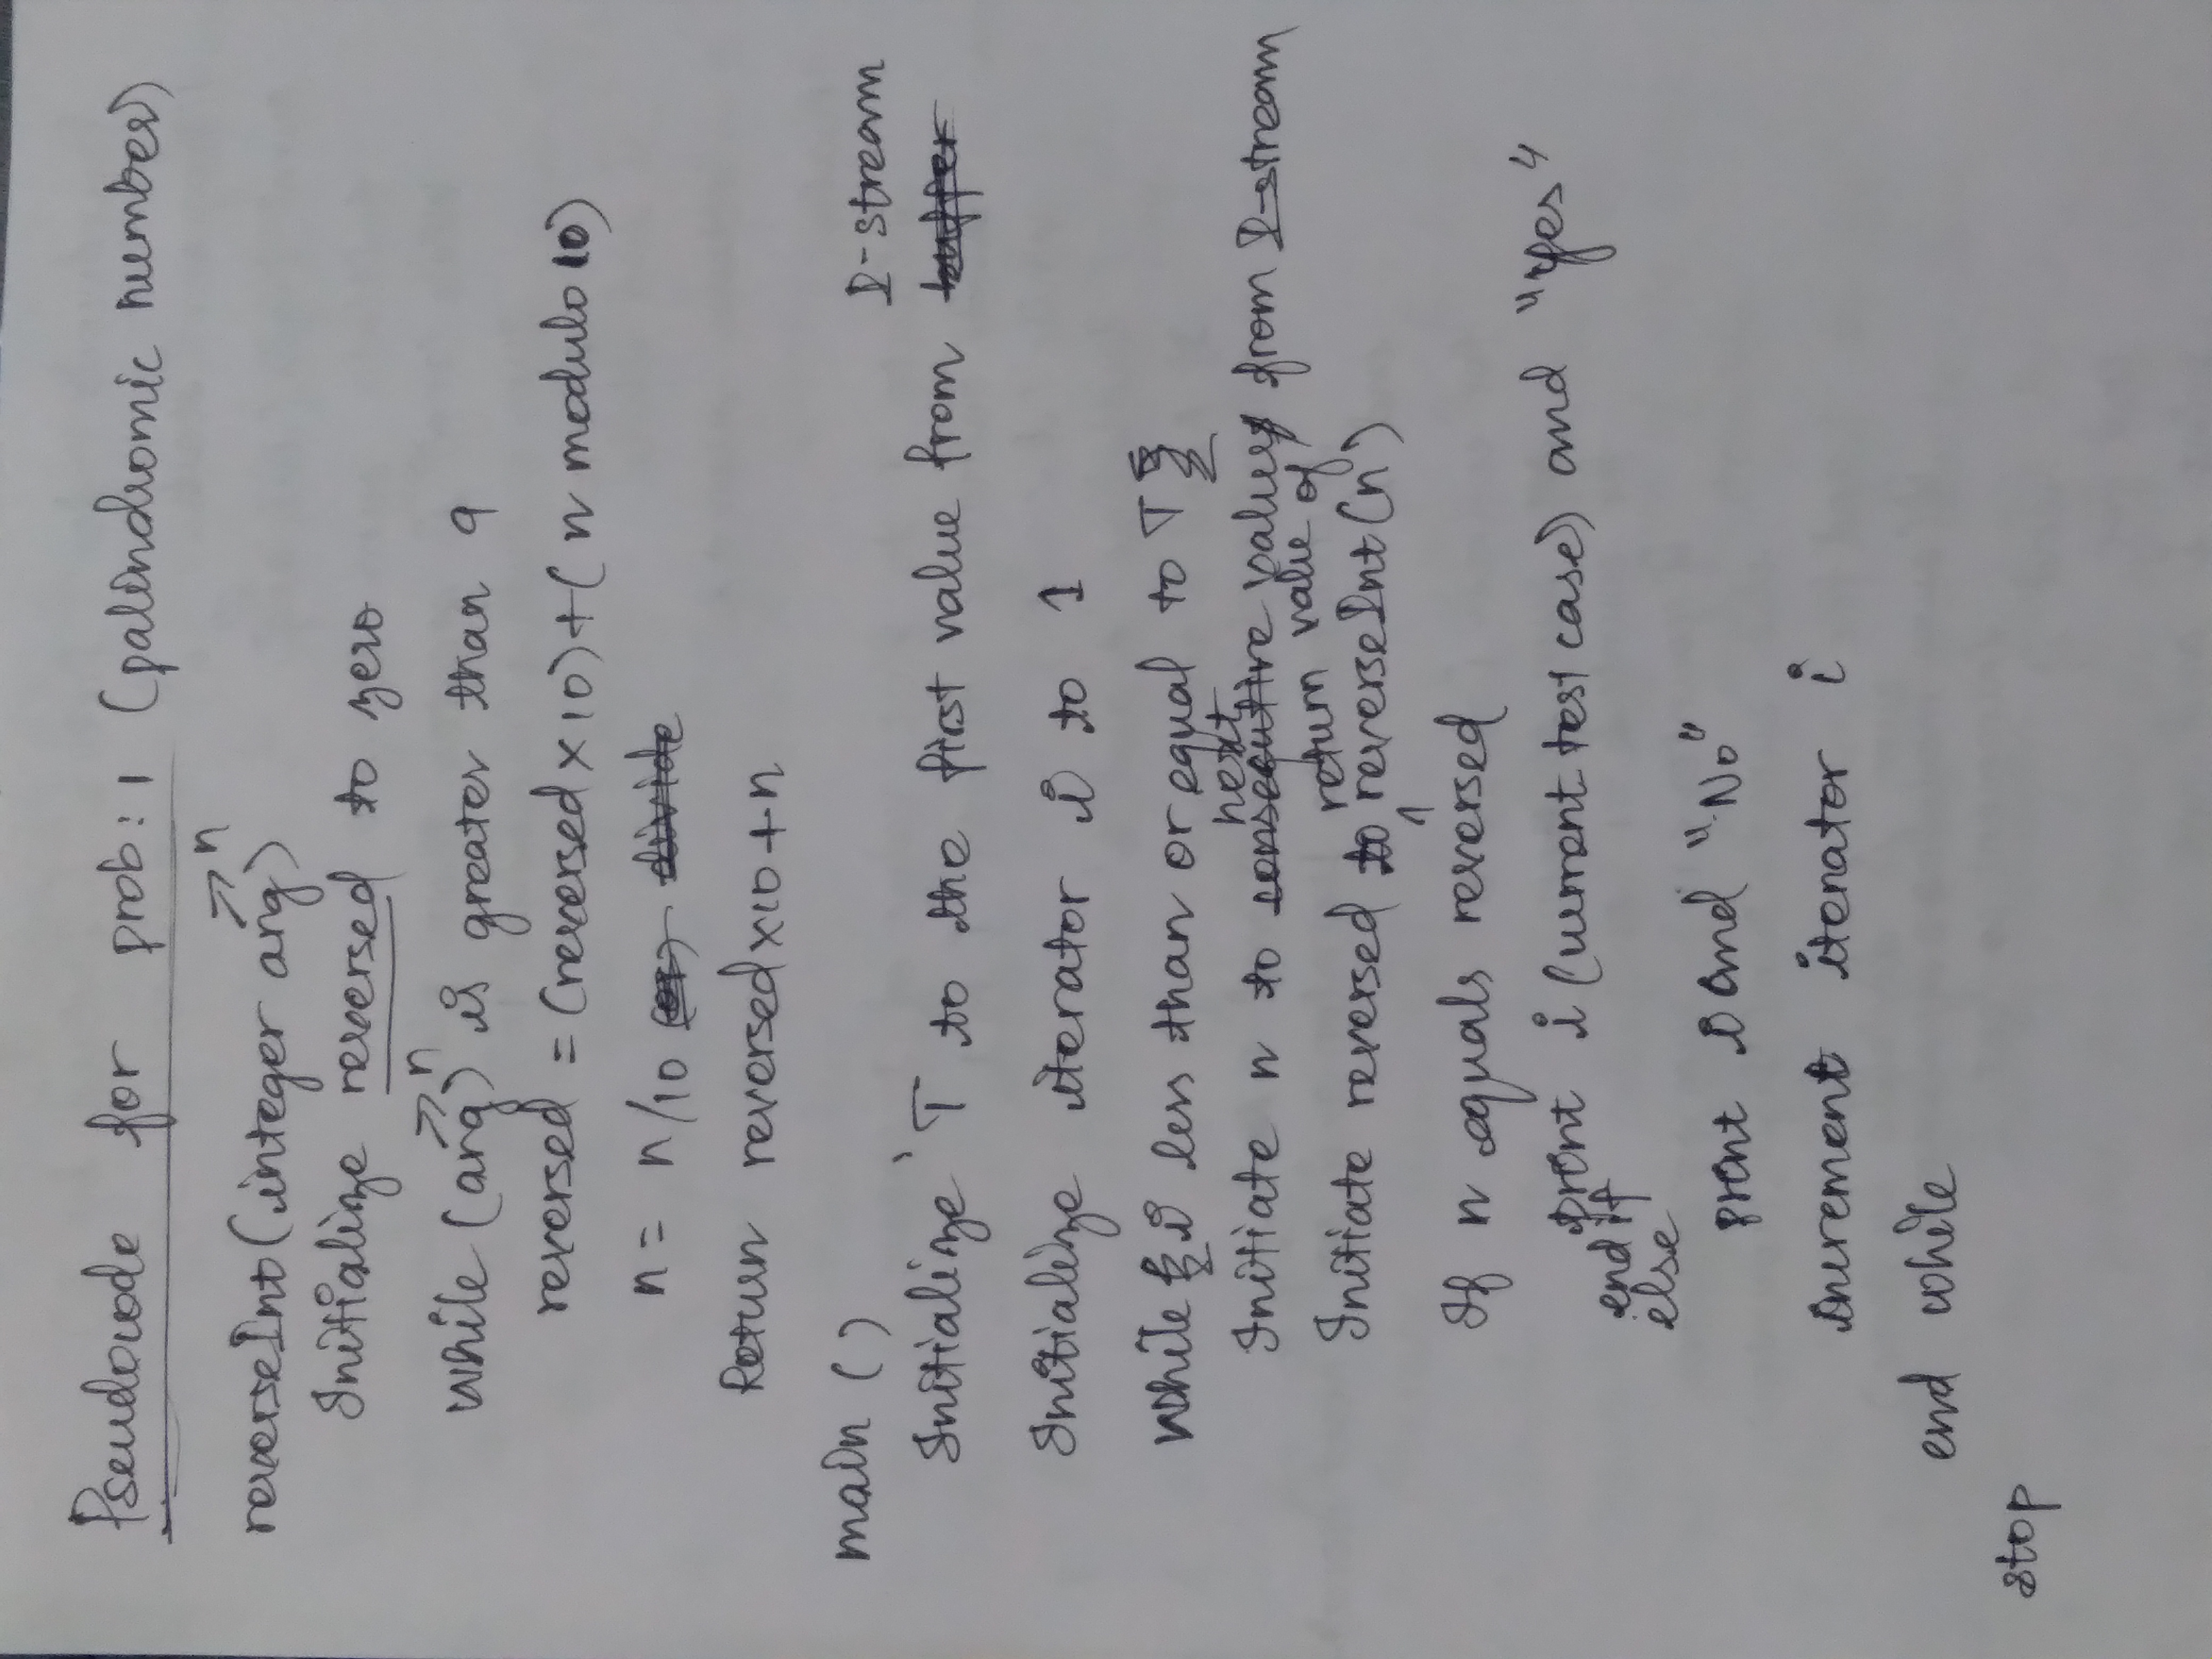 Pseudocode for prob: 1 (palindromic number)
reverseInt (integer arg) → n
Initialize reversed to zero
while (arg) → n is greater than 9
reversed = (reversed × 10) + ( n modulo 10)
n = n/10 (or) divide
Return reversed×10 + n
main ()
Initialize 'T to the first value from buffer I-stream
Initialize iterator i to 1
While { i less than or equal to T }
Initiate n to consecutive next values from I-stream
Initiate reversed to return value of reverseInt (n)
If n equals reversed
print i (current test case) and "Yes"
end if
else
print i and "No"
increment iterator i
end while
stop